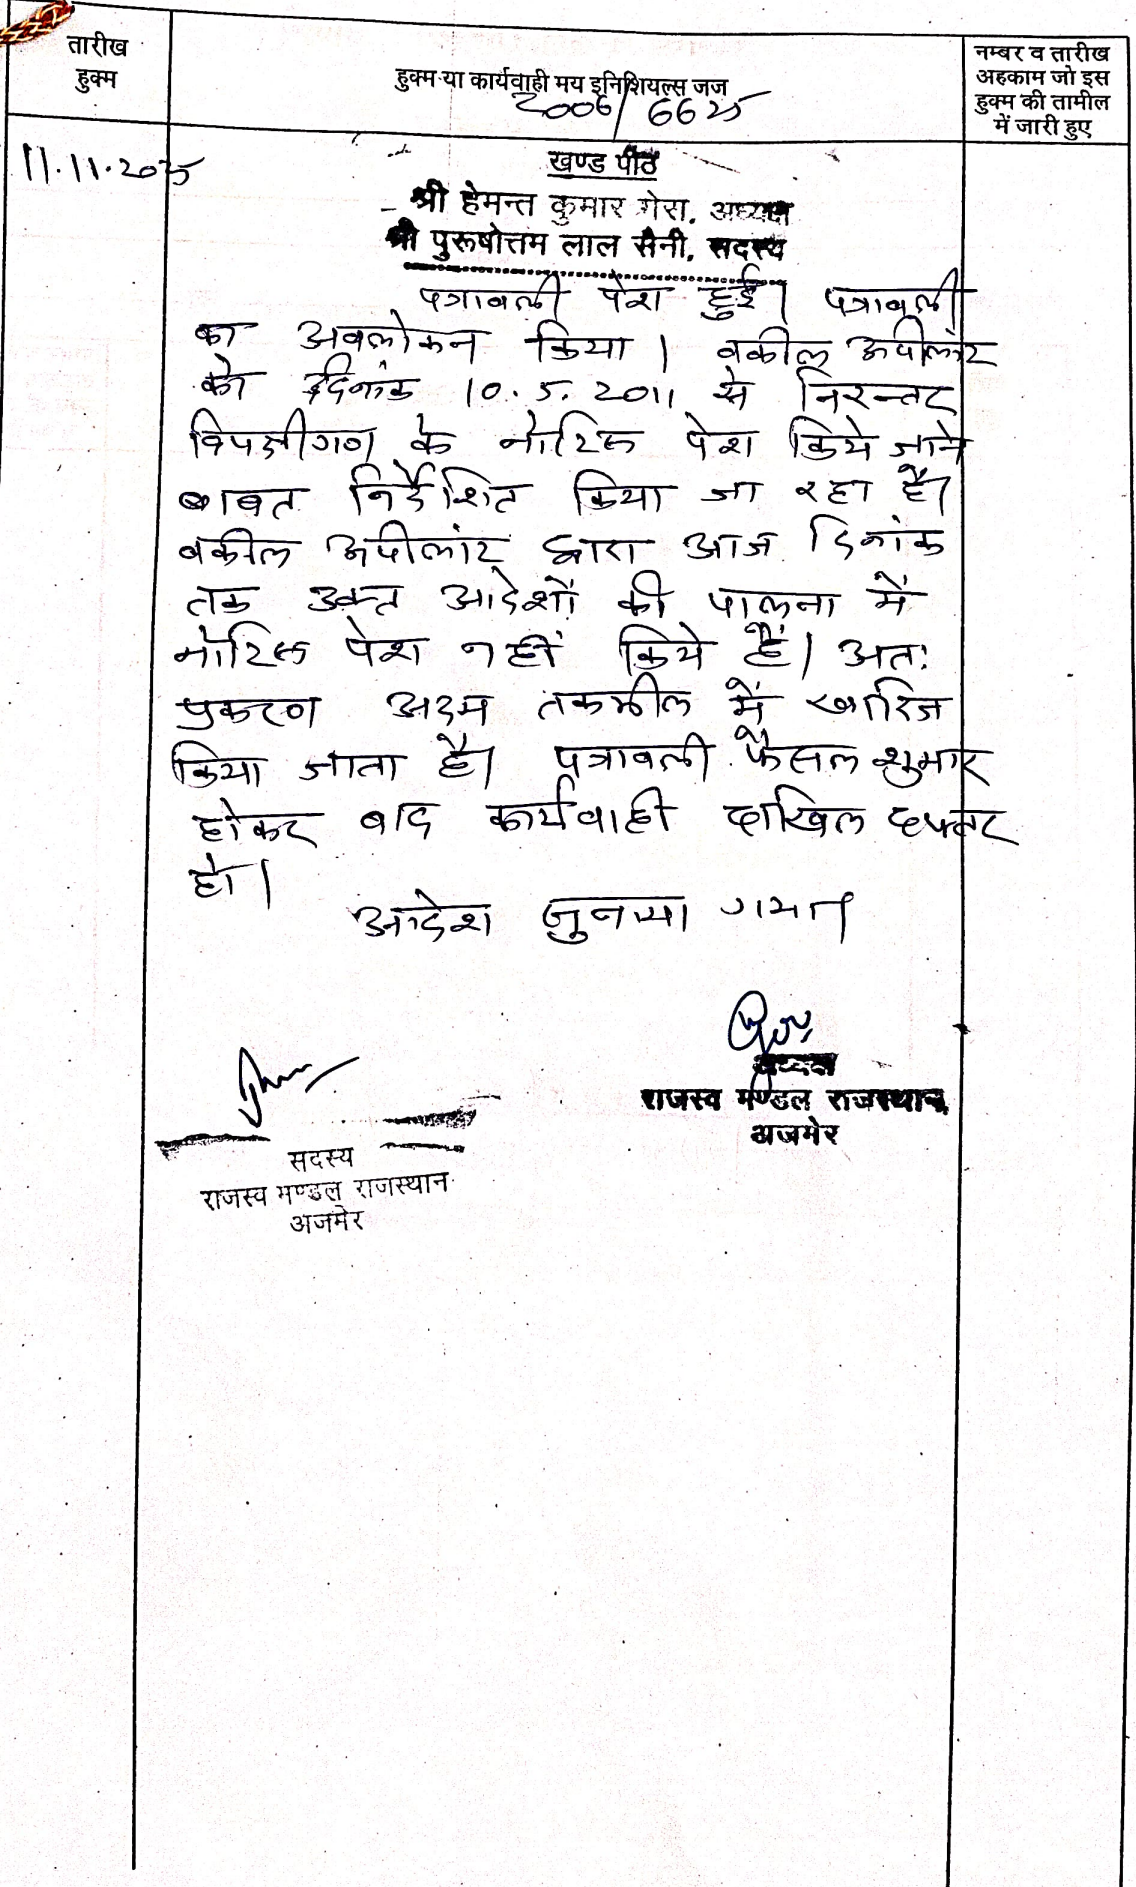 तारीख
हुक्म
हुक्म या कार्यवाही मय इनिशियल्स जज
नम्बर व तारीख
अहकाम जो इस
हुक्म की तामील
में जारी हुए
2006/6625
11.11.2025
खण्ड पीठ
श्री हेमन्त कुमार गेरा, अध्यक्ष
श्री पुरूषोत्तम लाल सैनी, सदस्य
पत्रावली पेश हुई। पत्रावली
का अवलोकन किया। वकील अपीलांट
को दिनांक 10.5.2011 से निरन्तर
विपक्षीगण के नोटिस पेश किये जाने
बाबत निर्देशित किया जा रहा है।
वकील अपीलांट द्वारा आज दिनांक
तक उक्त आदेशों की पालना में
नोटिस पेश नहीं किये हैं। अतः
प्रकरण अदम तकमील में खारिज
किया जाता है। पत्रावली फैसल शुमार
होकर बाद कार्यवाही दाखिल दफ्तर
हो।
आदेश सुनाया गया।
अध्यक्ष
राजस्व मण्डल राजस्थान
अजमेर
सदस्य
राजस्व मण्डल राजस्थान
अजमेर